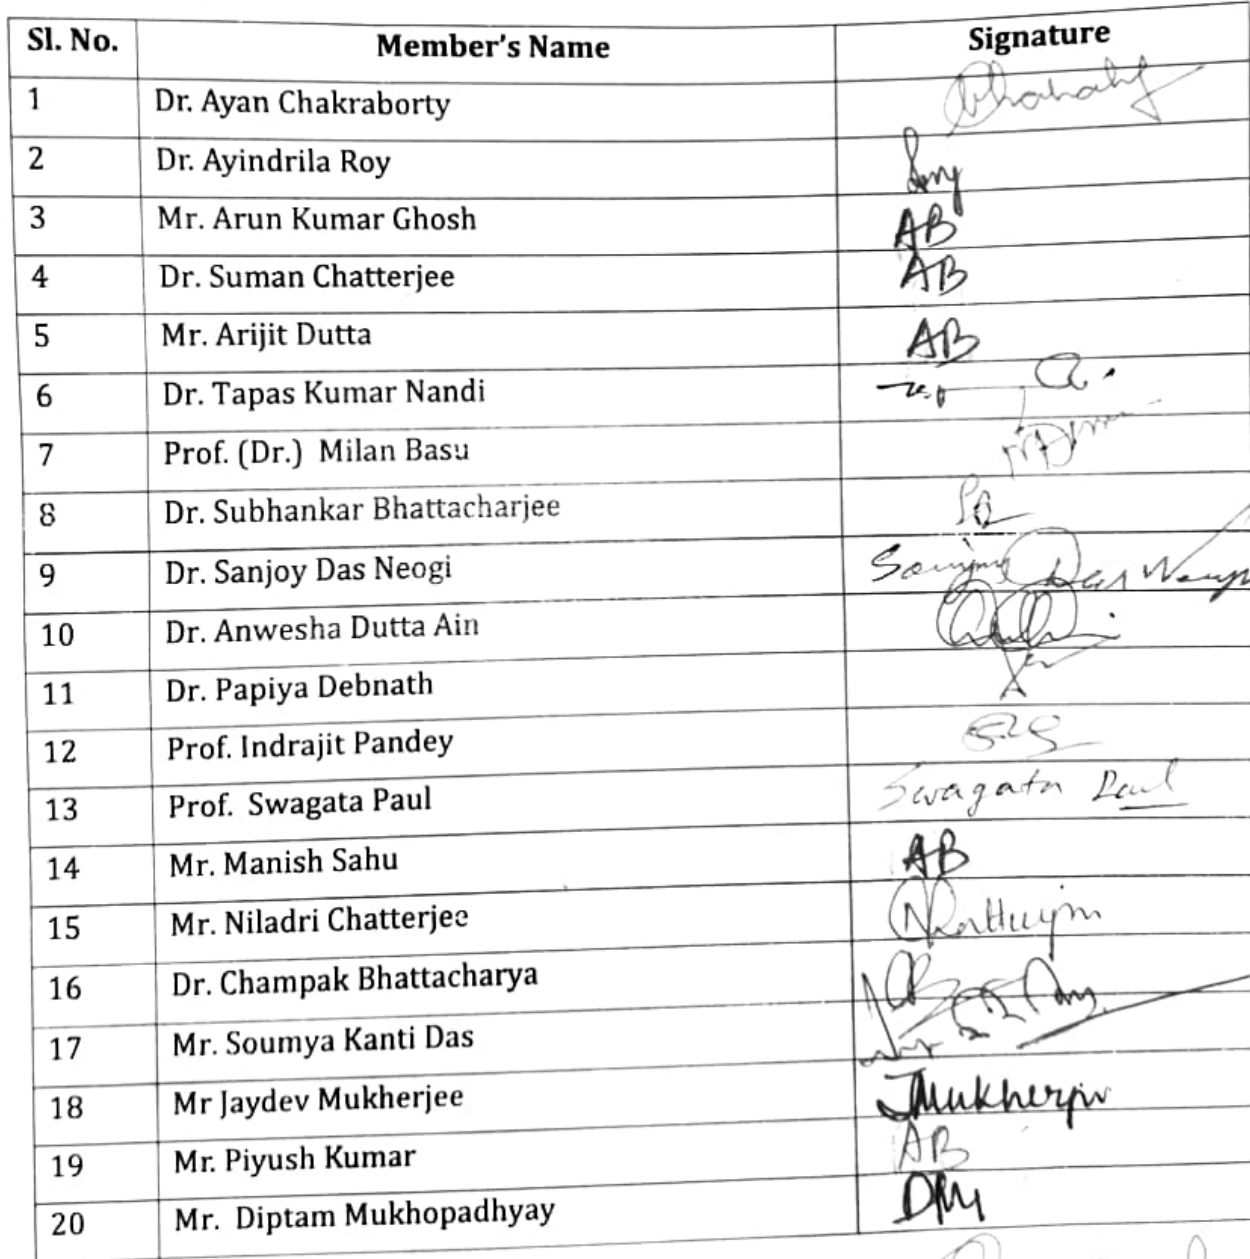 Sl. No. Member's Name Signature
1 Dr. Ayan Chakraborty
2 Dr. Ayindrila Roy
3 Mr. Arun Kumar Ghosh AB
4 Dr. Suman Chatterjee AB
5 Mr. Arijit Dutta AB
6 Dr. Tapas Kumar Nandi
7 Prof. (Dr.) Milan Basu
8 Dr. Subhankar Bhattacharjee
9 Dr. Sanjoy Das Neogi
10 Dr. Anwesha Dutta Ain
11 Dr. Papiya Debnath
12 Prof. Indrajit Pandey
13 Prof. Swagata Paul Swagata Paul
14 Mr. Manish Sahu AB
15 Mr. Niladri Chatterjee
16 Dr. Champak Bhattacharya
17 Mr. Soumya Kanti Das
18 Mr Jaydev Mukherjee JMukherjee
19 Mr. Piyush Kumar AB
20 Mr. Diptam Mukhopadhyay DM